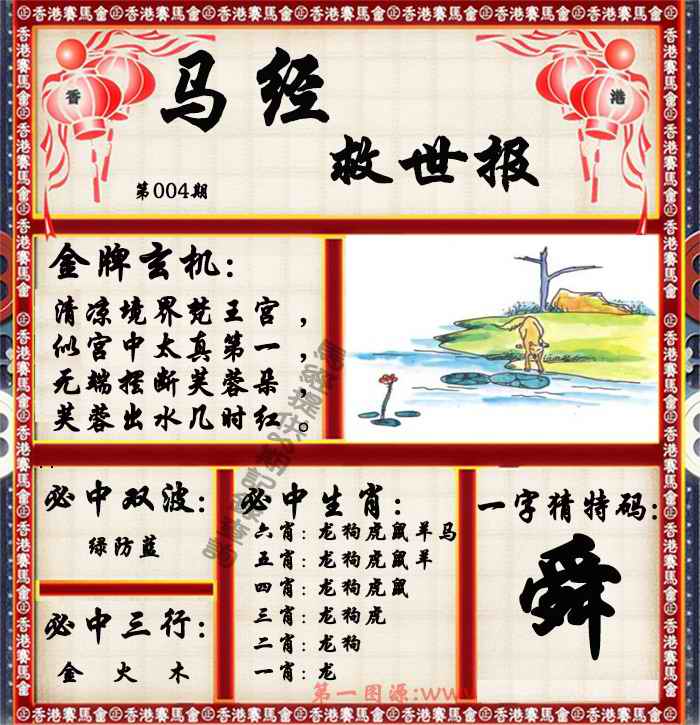 香港賽馬會
香 港
马经
救世报
第004期
金牌玄机：
清凉境界梵王宫，
似宫中太真第一，
无端摧断芙蓉朵，
芙蓉出水几时红。
必中双波：
绿防蓝
必中三行：
金 火 木
必中生肖：
六肖：龙狗虎鼠羊马
五肖：龙狗虎鼠羊
四肖：龙狗虎鼠
三肖：龙狗虎
二肖：龙狗
一肖：龙
一字猜特码：
舜
第一图源:www